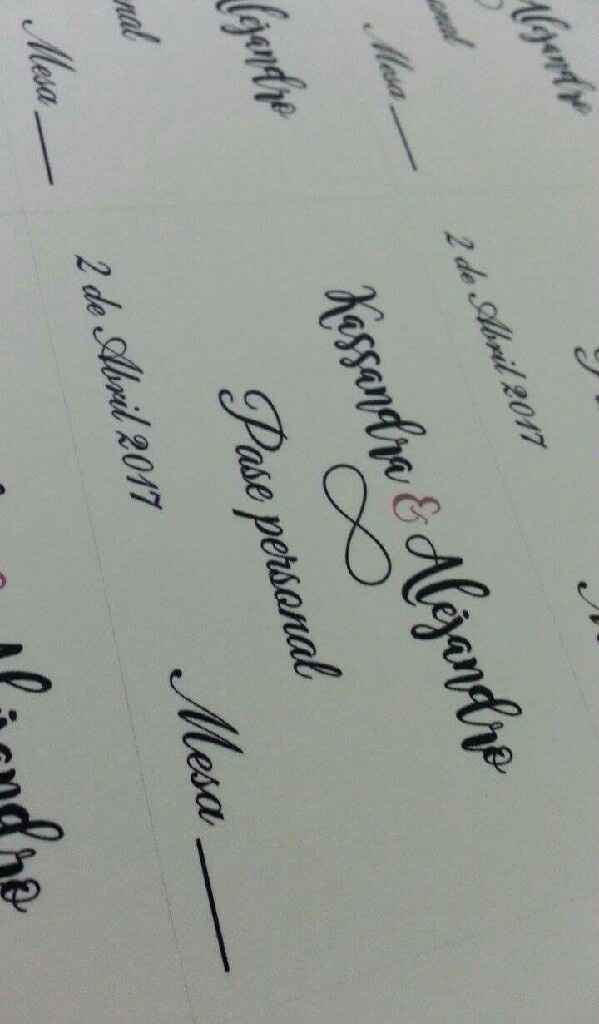 Mesa
nal
Alejandro
Mesa
onal
Alejandro
2 de Abril 2017
Kassandra & Alejandro
Pase personal
2 de Abril 2017
Mesa
Alejandro